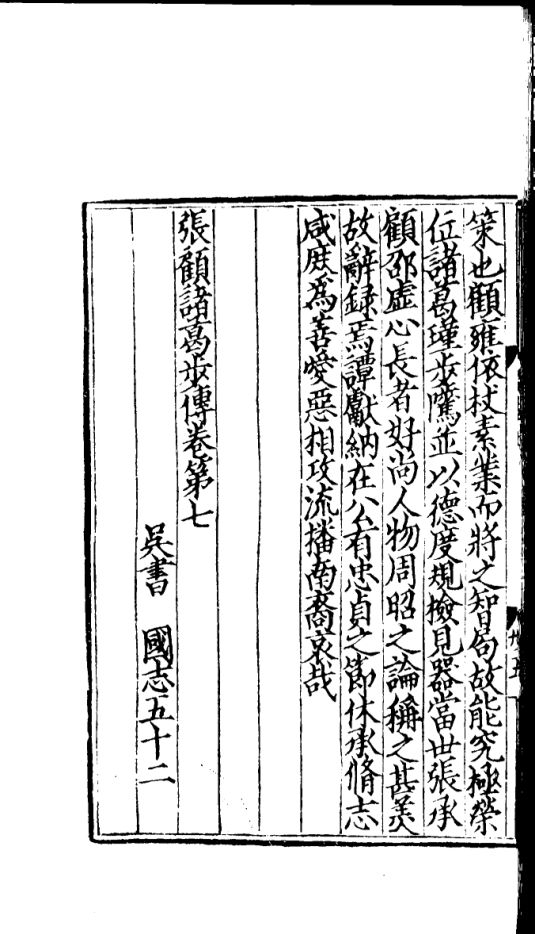 策也顧雍依杖素業而將之智局故能究極榮
位諸葛瑾步騭並以德度規檢見器當世張承
顧邵虛心長者好尚人物周昭之論稱之甚美
故辭録焉譚獻納在公有忠貞之節休承脩志
咸庶爲善愛惡相攻流播南裔哀哉
張顧諸葛步傳卷第七
吳書 國志五十二